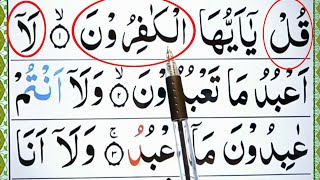 قُلْ يٰٓاَيُّهَا الْكٰفِرُوْنَ ۙ﴿۱﴾ لَاۤ
اَعْبُدُ مَا تَعْبُدُوْنَ ۙ﴿۲﴾ وَلَاۤ اَنْتُمْ
عٰبِدُوْنَ مَاۤ اَعْبُدُ ۚ﴿۳﴾ وَلَاۤ اَنَا